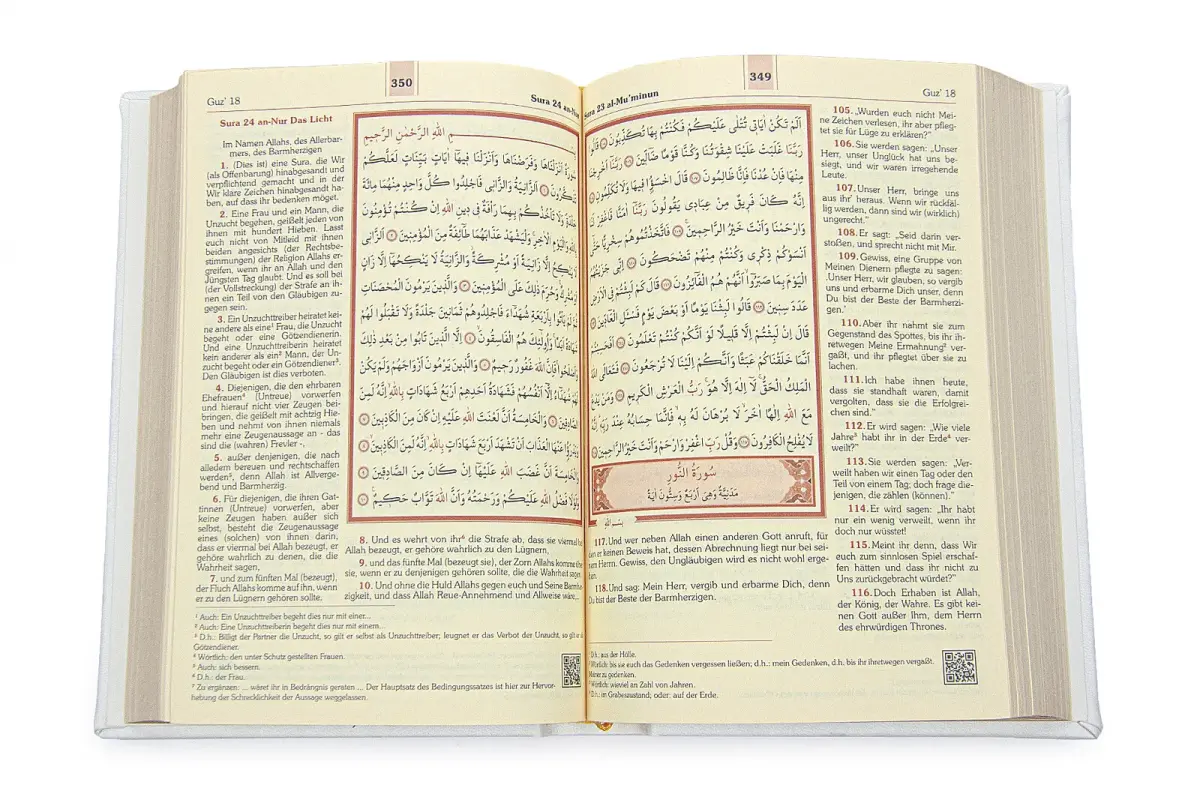 349
Sura 23 al-Mu'minun
Guz' 18
اَلَمْ تَكُنْ اٰيَاتِي تُتْلٰى عَلَيْكُمْ فَكُنْتُمْ بِهَا تُكَذِّبُونَ قَالُوا
رَبَّنَا غَلَبَتْ عَلَيْنَا شِقْوَتُنَا وَكُنَّا قَوْمًا ضَالِّينَ رَبَّنَا اَخْرِجْنَا
مِنْهَا فَاِنْ عُدْنَا فَاِنَّا ظَالِمُونَ قَالَ اخْسَؤُا فِيهَا وَلَا تُكَلِّمُونِ
اِنَّهُ كَانَ فَرِيقٌ مِنْ عِبَادِي يَقُولُونَ رَبَّنَا اٰمَنَّا فَاغْفِرْ لَنَا
وَارْحَمْنَا وَاَنْتَ خَيْرُ الرَّاحِمِينَ فَاتَّخَذْتُمُوهُمْ سِخْرِيًّا حَتّٰى
اَنْسَوْكُمْ ذِكْرِي وَكُنْتُمْ مِنْهُمْ تَضْحَكُونَ اِنِّي جَزَيْتُهُمُ
الْيَوْمَ بِمَا صَبَرُوا اَنَّهُمْ هُمُ الْفَائِزُونَ قَالَ كَمْ لَبِثْتُمْ فِي الْاَرْضِ
عَدَدَ سِنِينَ قَالُوا لَبِثْنَا يَوْمًا اَوْ بَعْضَ يَوْمٍ فَسْئَلِ الْعَادِّينَ
قَالَ اِنْ لَبِثْتُمْ اِلَّا قَلِيلًا لَوْ اَنَّكُمْ كُنْتُمْ تَعْلَمُونَ اَفَحَسِبْتُمْ
اَنَّمَا خَلَقْنَاكُمْ عَبَثًا وَاَنَّكُمْ اِلَيْنَا لَا تُرْجَعُونَ فَتَعَالَى اللّٰهُ
الْمَلِكُ الْحَقُّ لَا اِلٰهَ اِلَّا هُوَ رَبُّ الْعَرْشِ الْكَرِيمِ وَمَنْ يَدْعُ
مَعَ اللّٰهِ اِلٰهًا اٰخَرَ لَا بُرْهَانَ لَهُ بِهِ فَاِنَّمَا حِسَابُهُ عِنْدَ رَبِّهِ اِنَّهُ
لَا يُفْلِحُ الْكَافِرُونَ وَقُلْ رَبِّ اغْفِرْ وَارْحَمْ وَاَنْتَ خَيْرُ الرَّاحِمِينَ
سُورَةُ النُّورِ
مَدَنِيَّةٌ وَهِيَ اَرْبَعٌ وَسِتُّونَ اٰيَةً
بِسْمِ اللّٰهِ
105. „Wurden euch nicht Mei-
ne Zeichen verlesen, ihr aber pfleg-
tet sie für Lüge zu erklären?"
106. Sie werden sagen: „Unser
Herr, unser Unglück hat uns be-
siegt, und wir waren irregehende
Leute.
107. Unser Herr, bringe uns
aus ihr' heraus. Wenn wir rückfäl-
lig werden, dann sind wir (wirklich)
ungerecht."
108. Er sagt: „Seid darin ver-
stoßen, und sprecht nicht mit Mir.
109. Gewiss, eine Gruppe von
Meinen Dienern pflegte zu sagen:
'Unser Herr, wir glauben, so vergib
uns und erbarme Dich unser, denn
Du bist der Beste der Barmherzi-
gen.'
110. Aber ihr nahmt sie zum
Gegenstand des Spottes, bis ihr ih-
retwegen Meine Ermahnung² ver-
gaßt, und ihr pflegtet über sie zu
lachen.
111. Ich habe ihnen heute,
dass sie standhaft waren, damit
vergolten, dass sie die Erfolgrei-
chen sind."
112. Er wird sagen: „Wie viele
Jahre³ habt ihr in der Erde⁴ ver-
weilt?"
113. Sie werden sagen: „Ver-
weilt haben wir einen Tag oder den
Teil von einem Tag; doch frage die-
jenigen, die zählen (können)."
114. Er wird sagen: „Ihr habt
nur ein wenig verweilt, wenn ihr
doch nur wüsstet!
115. Meint ihr denn, dass Wir
euch zum sinnlosen Spiel erschaf-
fen hätten und dass ihr nicht zu
Uns zurückgebracht würdet?"
116. Doch Erhaben ist Allah,
der König, der Wahre. Es gibt kei-
nen Gott außer Ihm, dem Herrn
des ehrwürdigen Thrones.
117. Und wer neben Allah einen anderen Gott anruft, für
den er keinen Beweis hat, dessen Abrechnung liegt nur bei sei-
nem Herrn. Gewiss, den Ungläubigen wird es nicht wohl erge-
hen.
118. Und sag: Mein Herr, vergib und erbarme Dich, denn
Du bist der Beste der Barmherzigen.
D.h.: aus der Hölle.
Wörtlich: bis sie euch das Gedenken vergessen ließen; d.h.: mein Gedenken, d.h. bis ihr ihretwegen vergaßt,
Meiner zu gedenken.
Wörtlich: wieviel an Zahl von Jahren.
D.h.: im Grabeszustand; oder: auf der Erde.
350
Guz' 18
Sura 24 an-Nur
بِسْمِ اللّٰهِ الرَّحْمٰنِ الرَّحِيمِ
سُورَةٌ اَنْزَلْنَاهَا وَفَرَضْنَاهَا وَاَنْزَلْنَا فِيهَا اٰيَاتٍ بَيِّنَاتٍ لَعَلَّكُمْ
تَذَكَّرُونَ اَلزَّانِيَةُ وَالزَّانِي فَاجْلِدُوا كُلَّ وَاحِدٍ مِنْهُمَا مِائَةَ
جَلْدَةٍ وَلَا تَأْخُذْكُمْ بِهِمَا رَأْفَةٌ فِي دِينِ اللّٰهِ اِنْ كُنْتُمْ تُؤْمِنُونَ
بِاللّٰهِ وَالْيَوْمِ الْاٰخِرِ وَلْيَشْهَدْ عَذَابَهُمَا طَائِفَةٌ مِنَ الْمُؤْمِنِينَ اَلزَّانِي
لَا يَنْكِحُ اِلَّا زَانِيَةً اَوْ مُشْرِكَةً وَالزَّانِيَةُ لَا يَنْكِحُهَا اِلَّا زَانٍ
اَوْ مُشْرِكٌ وَحُرِّمَ ذٰلِكَ عَلَى الْمُؤْمِنِينَ وَالَّذِينَ يَرْمُونَ الْمُحْصَنَاتِ
ثُمَّ لَمْ يَأْتُوا بِاَرْبَعَةِ شُهَدَاءَ فَاجْلِدُوهُمْ ثَمَانِينَ جَلْدَةً وَلَا تَقْبَلُوا لَهُمْ
شَهَادَةً اَبَدًا وَاُولٰئِكَ هُمُ الْفَاسِقُونَ اِلَّا الَّذِينَ تَابُوا مِنْ بَعْدِ ذٰلِكَ
وَاَصْلَحُوا فَاِنَّ اللّٰهَ غَفُورٌ رَحِيمٌ وَالَّذِينَ يَرْمُونَ اَزْوَاجَهُمْ وَلَمْ يَكُنْ
لَهُمْ شُهَدَاءُ اِلَّا اَنْفُسُهُمْ فَشَهَادَةُ اَحَدِهِمْ اَرْبَعُ شَهَادَاتٍ بِاللّٰهِ اِنَّهُ لَمِنَ
الصَّادِقِينَ وَالْخَامِسَةُ اَنَّ لَعْنَتَ اللّٰهِ عَلَيْهِ اِنْ كَانَ مِنَ الْكَاذِبِينَ
وَيَدْرَؤُا عَنْهَا الْعَذَابَ اَنْ تَشْهَدَ اَرْبَعَ شَهَادَاتٍ بِاللّٰهِ اِنَّهُ لَمِنَ الْكَاذِبِينَ
وَالْخَامِسَةَ اَنَّ غَضَبَ اللّٰهِ عَلَيْهَا اِنْ كَانَ مِنَ الصَّادِقِينَ
وَلَوْلَا فَضْلُ اللّٰهِ عَلَيْكُمْ وَرَحْمَتُهُ وَاَنَّ اللّٰهَ تَوَّابٌ حَكِيمٌ
Sura 24 an-Nur Das Licht
Im Namen Allahs, des Allerbar-
mers, des Barmherzigen
1. (Dies ist) eine Sura, die Wir
(als Offenbarung) hinabgesandt und
verpflichtend gemacht und in der
Wir klare Zeichen hinabgesandt ha-
ben, auf dass ihr bedenken möget.
2. Eine Frau und ein Mann, die
Unzucht begehen, geißelt jeden von
ihnen mit hundert Hieben. Lasst
euch nicht von Mitleid mit ihnen
beiden angesichts (der Rechtsbe-
stimmungen) der Religion Allahs er-
greifen, wenn ihr an Allah und den
Jüngsten Tag glaubt. Und es soll bei
(der Vollstreckung) der Strafe an ih-
nen ein Teil von den Gläubigen zu-
gegen sein.
3. Ein Unzuchttreiber heiratet kei-
ne andere als eine¹ Frau, die Unzucht
begeht oder eine Götzendienerin.
Und eine Unzuchttreiberin heiratet
kein anderer als ein² Mann, der Un-
zucht begeht oder ein Götzendiener³.
Den Gläubigen ist dies verboten.
4. Diejenigen, die den ehrbaren
Ehefrauen⁴ (Untreue) vorwerfen
und hierauf nicht vier Zeugen bei-
bringen, die geißelt mit achtzig Hie-
ben und nehmt von ihnen niemals
mehr eine Zeugenaussage an - das
sind die (wahren) Frevler -,
5. außer denjenigen, die nach
alledem bereuen und rechtschaffen
werden⁵, denn Allah ist Allverge-
bend und Barmherzig.
6. Für diejenigen, die ihren Gat-
tinnen (Untreue) vorwerfen, aber
keine Zeugen haben außer sich
selbst, besteht die Zeugenaussage
eines (solchen) von ihnen darin,
dass er viermal bei Allah bezeugt, er
gehöre wahrlich zu denen, die die
Wahrheit sagen,
7. und zum fünften Mal (bezeugt),
der Fluch Allahs komme auf ihn, wenn
er zu den Lügnern gehören sollte.
8. Und es wehrt von ihr⁶ die Strafe ab, dass sie viermal bei
Allah bezeugt, er gehöre wahrlich zu den Lügnern,
9. und das fünfte Mal (bezeugt sie), der Zorn Allahs komme über
sie, wenn er zu denjenigen gehören sollte, die die Wahrheit sagen.
10. Und ohne die Huld Allahs gegen euch und Seine Barmher-
zigkeit, und dass Allah Reue-Annehmend und Allweise wäre...
¹ Auch: Ein Unzuchttreiber begeht dies nur mit einer...
² Auch: Eine Unzuchttreiberin begeht dies nur mit einem...
³ D.h.: Billigt der Partner die Unzucht, so gilt er selbst als Unzuchttreiber; leugnet er das Verbot der Unzucht, so gilt er als
Götzendiener.
⁴ Wörtlich: den unter Schutz gestellten Frauen.
⁵ Auch: sich bessern.
⁶ D.h.: der Frau.
⁷ Zu ergänzen: ... wäret ihr in Bedrängnis geraten ... Der Hauptsatz des Bedingungssatzes ist hier zur Hervor-
hebung der Schrecklichkeit der Aussage weggelassen.